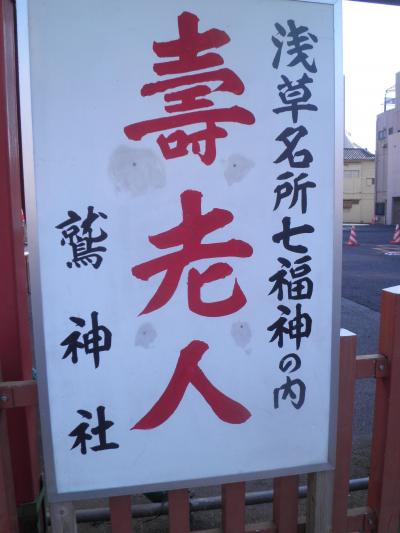 浅草名所七福神の内
壽老人
鷲神社